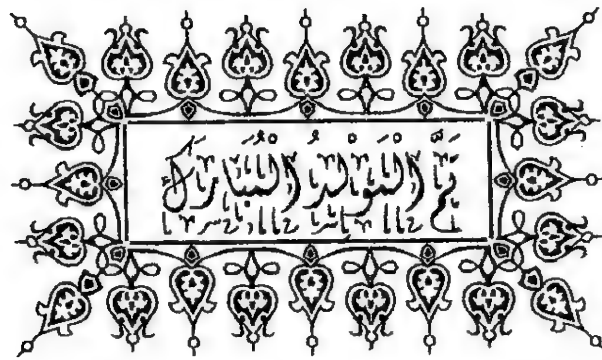 تَمَّ الْمَوْلِدُ الْمُبَارَكُ